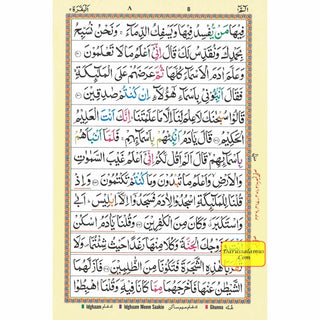 البقرة ٢ ٨ الٓمّٓ ١
فِيْهَا مَنْ يُّفْسِدُ فِيْهَا وَيَسْفِكُ الدِّمَآءَ ۚ وَنَحْنُ نُسَبِّحُ
بِحَمْدِكَ وَنُقَدِّسُ لَكَ ؕ قَالَ اِنِّيْٓ اَعْلَمُ مَا لَا تَعْلَمُوْنَ
وَعَلَّمَ اٰدَمَ الْاَسْمَآءَ كُلَّهَا ثُمَّ عَرَضَهُمْ عَلَى الْمَلٰٓئِكَةِ
فَقَالَ اَنْۢبِـُٔوْنِيْ بِاَسْمَآءِ هٰٓؤُلَآءِ اِنْ كُنْتُمْ صٰدِقِيْنَ
قَالُوْا سُبْحٰنَكَ لَا عِلْمَ لَنَآ اِلَّا مَا عَلَّمْتَنَا ؕ اِنَّكَ اَنْتَ الْعَلِيْمُ
الْحَكِيْمُ قَالَ يٰٓاٰدَمُ اَنْۢبِئْهُمْ بِاَسْمَآئِهِمْ ۚ فَلَمَّآ اَنْۢبَاَهُمْ
بِاَسْمَآئِهِمْ ۙ قَالَ اَلَمْ اَقُلْ لَّكُمْ اِنِّيْٓ اَعْلَمُ غَيْبَ السَّمٰوٰتِ
وَالْاَرْضِ ۙ وَاَعْلَمُ مَا تُبْدُوْنَ وَمَا كُنْتُمْ تَكْتُمُوْنَ وَاِذْ
قُلْنَا لِلْمَلٰٓئِكَةِ اسْجُدُوْا لِاٰدَمَ فَسَجَدُوْٓا اِلَّآ اِبْلِيْسَ ؕ اَبٰى
وَاسْتَكْبَرَ ۫ وَكَانَ مِنَ الْكٰفِرِيْنَ وَقُلْنَا يٰٓاٰدَمُ اسْكُنْ
وَزَوْجُكَ الْجَنَّةَ وَكُلَا مِنْهَا رَغَدًا حَيْثُ شِئْتُمَا ۪ وَلَا
هٰذِهِ الشَّجَرَةَ فَتَكُوْنَا مِنَ الظّٰلِمِيْنَ فَاَزَلَّهُمَا
الشَّيْطٰنُ عَنْهَا فَاَخْرَجَهُمَا مِمَّا كَانَا فِيْهِ ۪ وَقُلْنَا اهْبِطُوْا
Darussalamus
.Com
Idghaam
Idghaam Meem Saakin
Ghunna